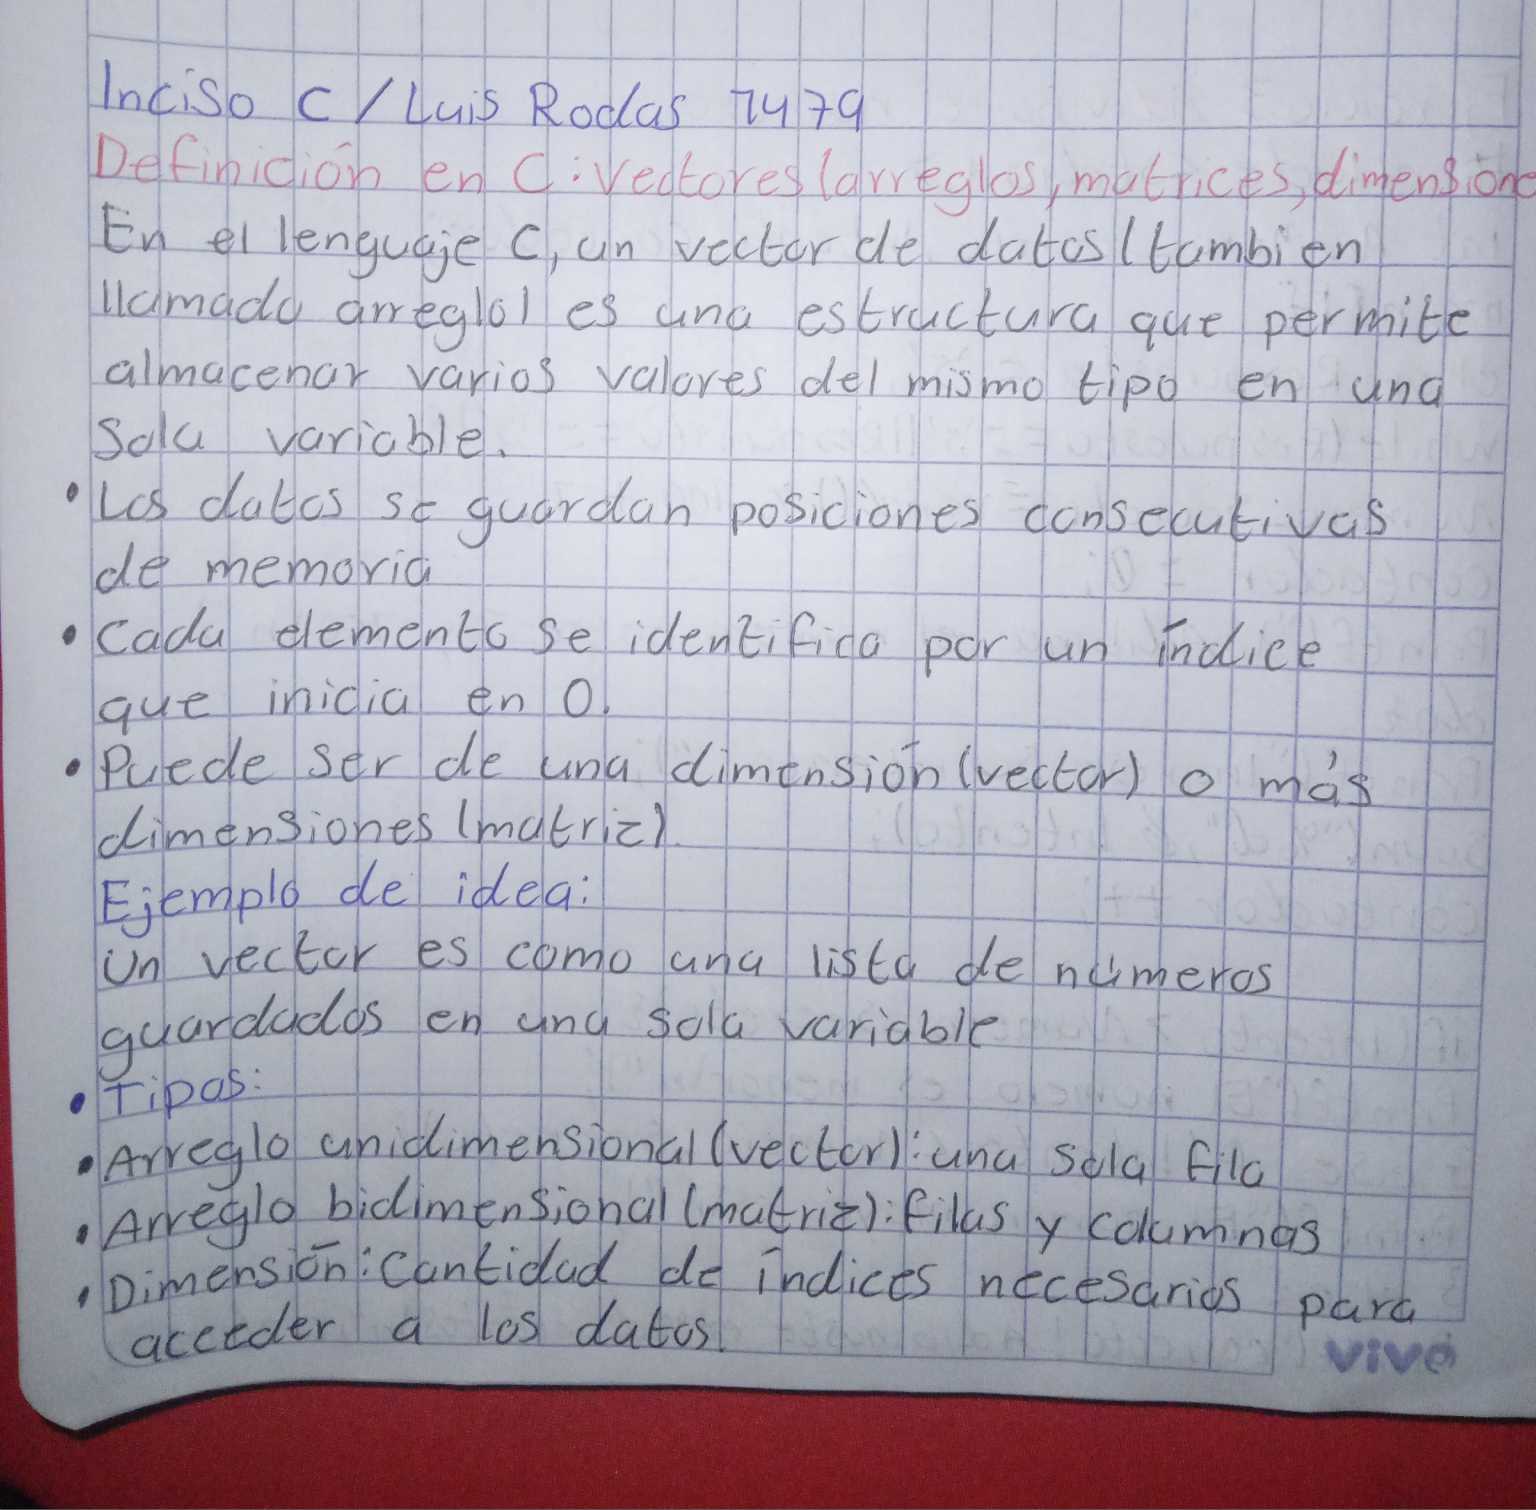 Inciso C / Luis Rodas 7479
Definición en C: Vectores (arreglos, matrices, dimensione
En el lenguaje C, un vector de datos (tambien
llamado arreglo) es una estructura que permite
almacenar varios valores del mismo tipo en una
sola variable.
• Los datos se guardan posiciones consecutivas
de memoria
• Cada elemento se identifica por un índice
que inicia en 0.
• Puede ser de una dimensión (vector) o más
dimensiones (matriz).
Ejemplo de idea:
Un vector es como una lista de números
guardados en una sola variable
• Tipos:
• Arreglo unidimensional (vector): una sola fila
• Arreglo bidimensional (matriz): filas y columnas
• Dimensión: Cantidad de índices necesarios para
acceder a los datos.
vive